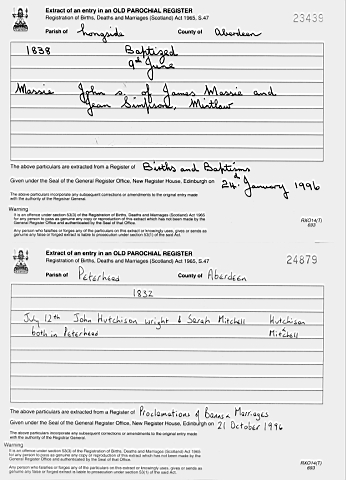 Extract of an entry in an OLD PAROCHIAL REGISTER
23439
Registration of Births, Deaths and Marriages (Scotland) Act 1965, S.47
Parish of Longside County of Aberdeen
1838 Baptized
9th June
Massie John s. of James Massie and
Jean Simpson, Mintlaw
The above particulars are extracted from a Register of Births and Baptisms
Given under the Seal of the General Register Office, New Register House, Edinburgh on 24th January 1996
The above particulars incorporate any subsequent corrections or amendments to the original entry made
with the authority of the Registrar General.
Warning
It is an offence under section 53(3) of the Registration of Births, Deaths and Marriages (Scotland) Act 1965
for any person to pass as genuine any copy or reproduction of this extract which has not been made by the
General Register Office and authenticated by the Seal of that Office.
Any person who falsifies or forges any of the particulars on this extract or knowingly uses, gives or sends as
genuine any false or forged extract is liable to prosecution under section 53(1) of the said Act.
RXO14(T)
693
Extract of an entry in an OLD PAROCHIAL REGISTER
24879
Registration of Births, Deaths and Marriages (Scotland) Act 1965, S.47
Parish of Peterhead County of Aberdeen
1832
July 12th John Hutchison wright & Sarah Mitchell Hutchison
both in Peterhead & Mitchell
The above particulars are extracted from a Register of Proclamations of Banns & Marriages
Given under the Seal of the General Register Office, New Register House, Edinburgh on 21 October 1996
The above particulars incorporate any subsequent corrections or amendments to the original entry made
with the authority of the Registrar General.
Warning
It is an offence under section 53(3) of the Registration of Births, Deaths and Marriages (Scotland) Act 1965
for any person to pass as genuine any copy or reproduction of this extract which has not been made by the
General Register Office and authenticated by the Seal of that Office.
Any person who falsifies or forges any of the particulars on this extract or knowingly uses, gives or sends as
genuine any false or forged extract is liable to prosecution under section 53(1) of the said Act.
RXO14(T)
693